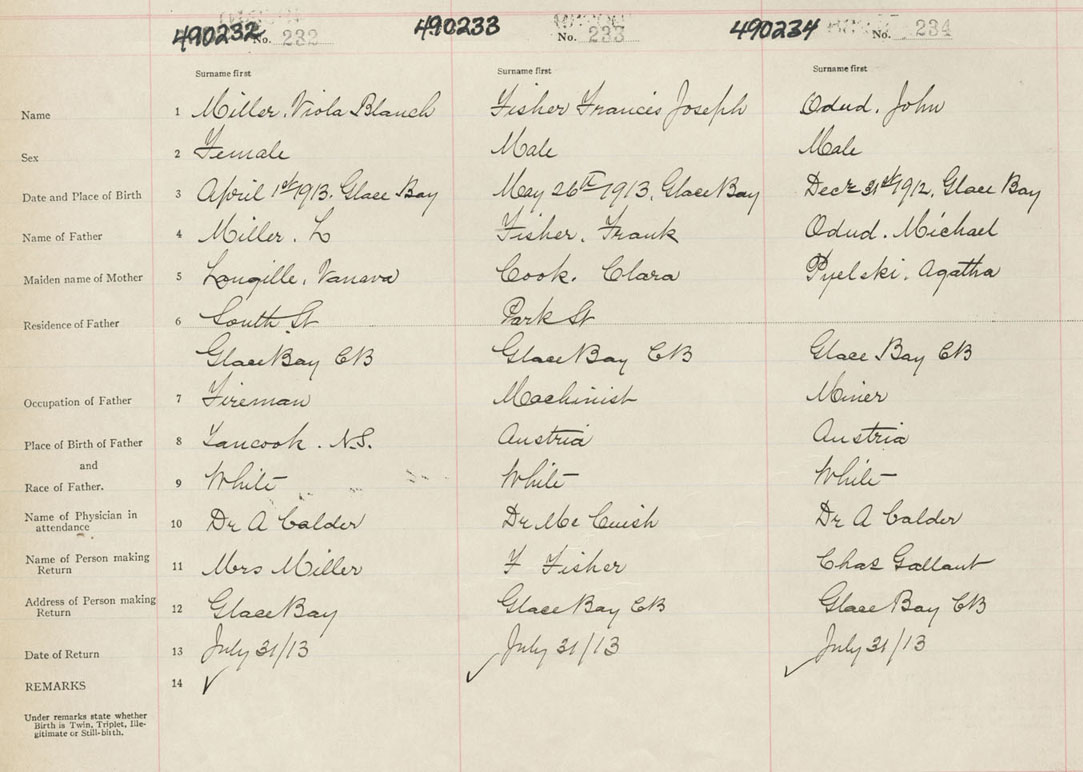 490232 No. 232 490233 No. 233 490234 No. 234
Surname first Surname first Surname first
Name 1 Miller, Viola Blanch Fisher Francis Joseph Odud, John
Sex 2 Female Male Male
Date and Place of Birth 3 April 1st 1913, Glace Bay May 26th 1913, Glace Bay Decr 31st 1912, Glace Bay
Name of Father 4 Miller. L Fisher, Frank Odud. Michael
Maiden name of Mother 5 Langille, Vanava Cook. Clara Pyelski, Agatha
Residence of Father 6 South St Park St
Glace Bay CB Glace Bay CB Glace Bay CB
Occupation of Father 7 Fireman Machinist Miner
Place of Birth of Father 8 Tancook. N.S. Austria Austria
and
Race of Father. 9 White White White
Name of Physician in attendance 10 Dr A Calder Dr Mc Cuish Dr A Calder
Name of Person making Return 11 Mrs Miller F Fisher Chas Gallant
Address of Person making Return 12 Glace Bay Glace Bay CB Glace Bay CB
Date of Return 13 July 31/13 July 31/13 July 31/13
REMARKS 14
Under remarks state whether
Birth is Twin, Triplet, Ille-
gitimate or Still-birth.